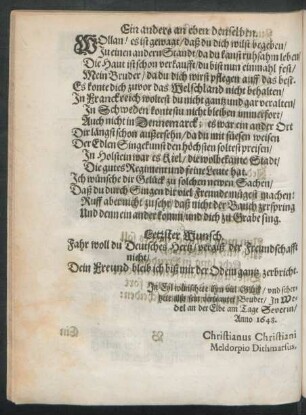 Ein anders an eben denselben.
WOllan / es ist gewagt / daß du dich wilst begeben /
In einen andern Standt / da du kanst ruhsahm leben
Die Haut ist schon verkaufft / du bist nun einmahl fest /
Mein Bruder / da du dich wirst pflegen auff das best-
Es konte dich zuvor das Welschland nicht behalten /
In Franckreich woltest du nicht gantz und gar veralten /
In Schweden kontestu nicht bleiben immerfort /
Auch nicht in Dennemarck; es war ein ander Ort
Dir längst schon außersehn / da du mit süessen weisen
Der Edlen Singekunst den höchsten soltest preisen /
In Holstein war es Kiel / die wolbekante Stadt /
Die gutes Regiment und feine Leute hat.
Ich wünsche dir Gelück zu solchen neuen Sachen /
Daß du durch Singen dir viel Freunde mögest machen:
Ruff aber nicht zu sehr / daß nicht der Bauch zerspring
Und denn ein ander komm / und dich zu Grabe sing.
Letzster Wunsch.
Fahr woll du Deutsches Hertz / vergiß der Freundschafft
nicht /
Dein Freund bleib ich biß mir der Odem gantz zerbricht.
In Eil wünschete ihm viel Glück / und scher-
tzete also sein vertrauter Bruder / In We-
del an der Elbe am Tage Severin /
Anno 1648.
Christianus Christiani
Meldorpio Dithmarsus.